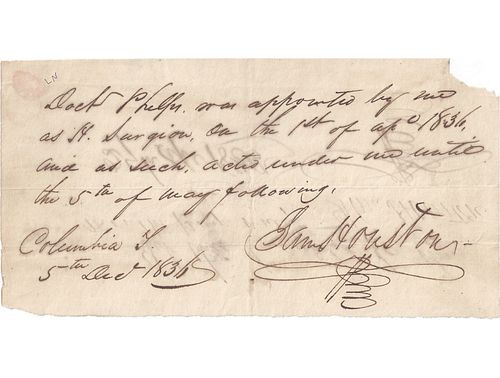 LN
Doct Phelps was appointed by me
as H. Surgion, on the 1st of apl 1836,
and as such, acted under me until
the 5th of May following.
Columbia T.
Sam Houston
5th Decr 1836